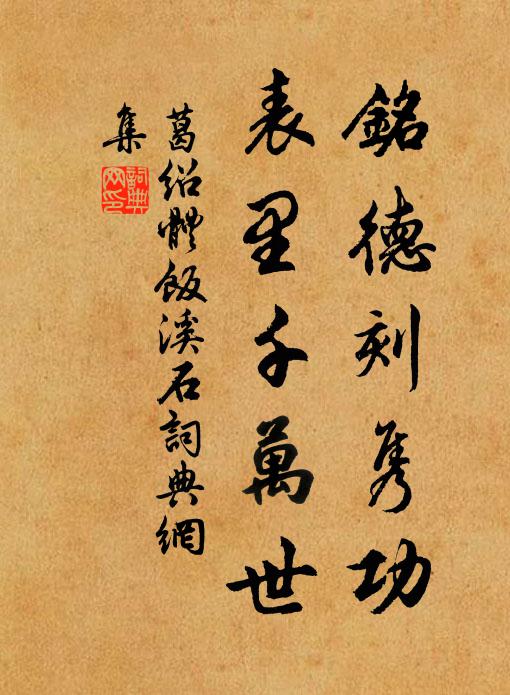 銘德刻雋功
表里千萬世
葛紹體飯溪石詞典網
集
詞典
网印